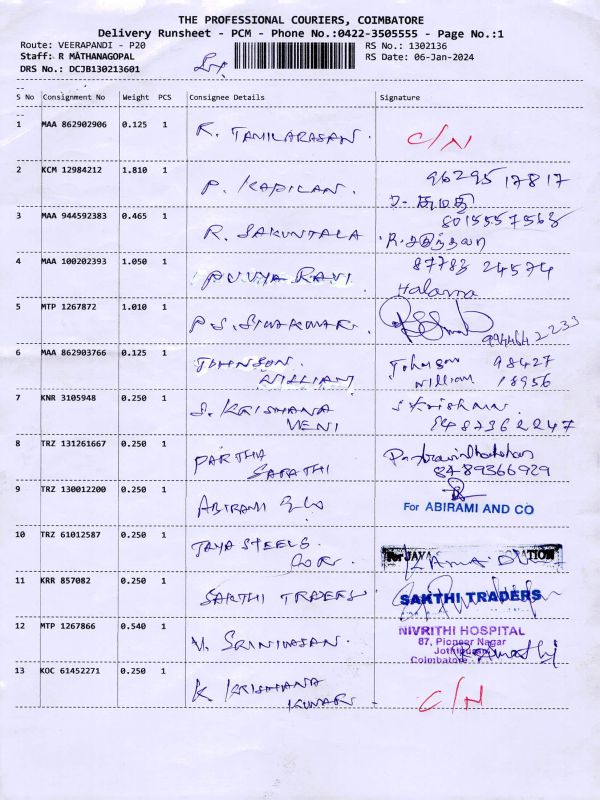 THE PROFESSIONAL COURIERS, COIMBATORE
Delivery Runsheet - PCM - Phone No.:0422-3505555 - Page No.:1
Route: VEERAPANDI - P20 RS No.: 1302136
Staff: R MATHANAGOPAL RS Date: 06-Jan-2024
DRS No.: DCJB130213601
S No Consignment No Weight PCS Consignee Details Signature
1 MAA 862902906 0.125 1 K. TAMILARASAN. C/N
2 KCM 12984212 1.810 1 P. KAPILAN. 96295 17817
3 MAA 944592383 0.465 1 R. SAKUNTALA
4 MAA 100202393 1.050 1 PUVYA RAVI 87783 24574
5 MTP 1267872 1.010 1 P.S. SIVAKUMAR.
6 MAA 862903766 0.125 1 JOHNSON. Johnson 98427
WILLIAM William 18956
7 KNR 3105948 0.250 1 S. KRISHANA
VENI 8487362247
8 TRZ 131261667 0.250 1 PARTHA
SARATHI 8489366929
9 TRZ 130012200 0.250 1 ABIRAMI & Co For ABIRAMI AND CO
10 TRZ 61012587 0.250 1 JAYA STEELS
COR. For JAYA
11 KRR 857082 0.250 1 SAKTHI TRADERS SAKTHI TRADERS
12 MTP 1267866 0.540 1 V. SRINIVASAN. NIVRITHI HOSPITAL
87, Pioneer Nagar
Jothipuram
Coimbatore
13 KOC 61452271 0.250 1 K KRISHANA
KUMAR C/N